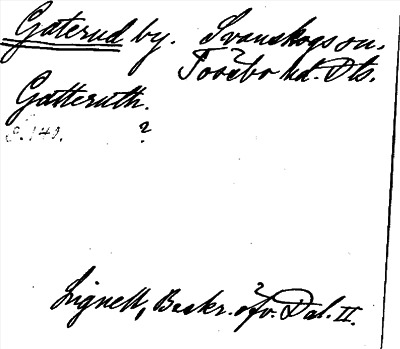 Gaterud by. Svanskogs sn.
Tössbo hd. Dls.
Gatteruth.
S. 149. ?
Lignell, Beskr. öfv. Dal. II.